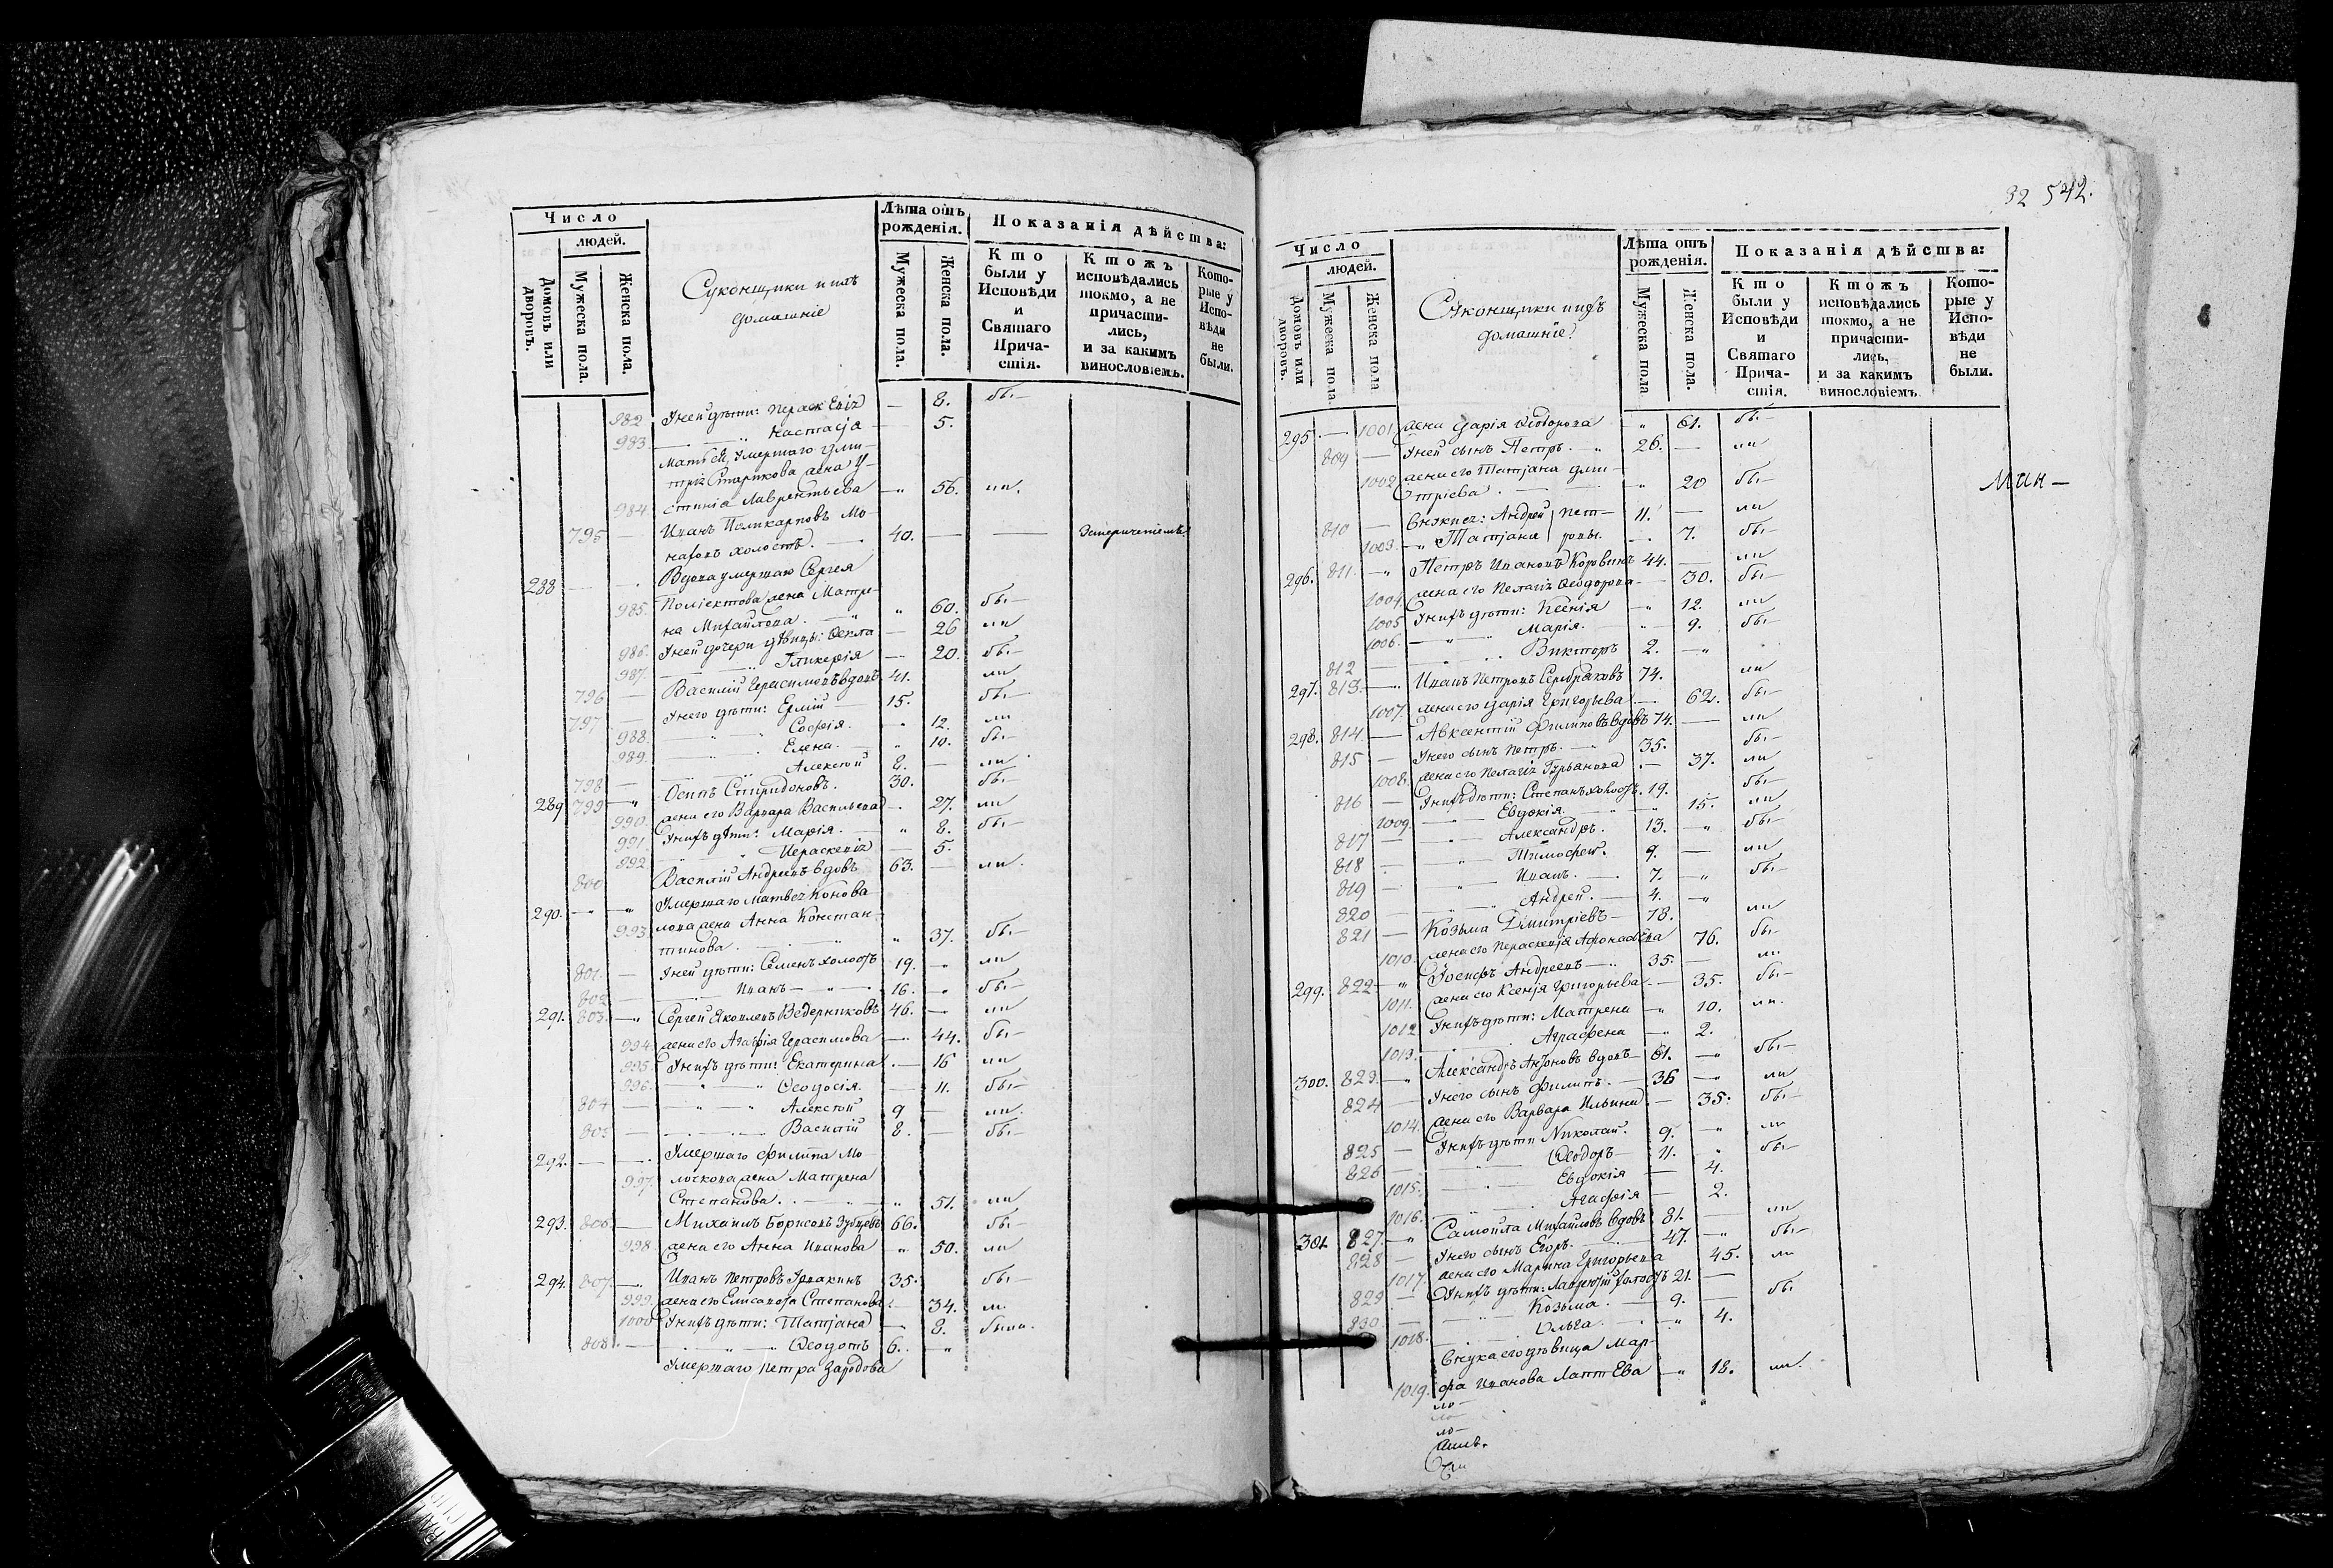 Число
людей.
Домовъ или дворовъ.
Мужеска пола.
Женска пола.
Суконщики и ихъ
домашніе
Лѣта отъ рожденія.
Мужеска пола.
Женска пола.
Показанія дѣйства:
Кто были у Исповѣди и Святаго Причастія.
Ктожъ исповѣдались токмо, а не причастились, и за какимъ винословіемъ.
Которые у Исповѣди не были.
982 У ней дѣти: — 8. бы-
983. — — Настасіа — 5.
Мать ей, умершаго Дми-
трія Старикова жена У-
984. стинія Лаврентьева — 56. ли.
795 — Иванъ Поликарповъ Мо-
наховъ холостъ. — 40. — —
288 — — Вдова умершаго Сергея
Поліектова жена Матре-
985. на Михайлова. — " 60. бы-
986. У ней дочери дѣвицы: Ѳекла — 26 ли
987. — — Гликерія — 20. бы-
796 — Василій Герасимовъ вдовъ 41. ли
797 — У него дѣти: Ермій — 15. бы-
988. — " Софія. " 12. ли
989. — " Елена. " 10. бы-
798 — — Алексѣй 8. — ли
289 799 — " Осипъ Спиридоновъ. 30. бы-
990. жена его Варвара Васильева — 27. ли
991 У нихъ дѣти: Марія. — " 8. бы-
992 — — — 5.
800 Василій Андреевъ вдовъ 63. — ли.
290. — " — " Умершаго Матвея Коново-
993. лова жена Анна Констан-
тинова. — " 37. бы-
801. — У ней дѣти: Семенъ холостъ 19. — " ли
802 — — Иванъ — " — 16. — " бы-
291. 803. — " Сергей Яковлевъ Ведерниковъ 46. — ли
994. жена его Агафія Герасимова — 44. бы-
995 У нихъ дѣти: Екатерина. — 16 ли
996. — " — " Ѳеодосія. — 11. бы-
804 — — " — " Алексѣй 9 — ли.
805 — — Василій 8. — бы-
292. — — Умершаго Филипа Мо-
997. жена Матрена
Степанова. — " 51. ли
293. 806. — Михаилъ Борисовъ Зубцевъ 66. бы-
998. жена его Анна Иванова " 50. ли
294. 807. — Иванъ Петровъ 35. бы-
999. жена его Елисавета Степанова — 34. ли.
1000 У нихъ дѣти: Татіана — 8. были.
808. — — " — " Ѳеодотъ 6. — "
Умершаго Петра
32 542.
Число
людей.
Домовъ или дворовъ.
Мужеска пола.
Женска пола
Суконщики и ихъ
домашніе.
Лѣта отъ рожденія.
Мужеска пола
Женска пола.
Показанія дѣйства:
Кто были у Исповѣди и Святаго Причастія.
Ктожъ исповѣдались токмо, а не причастились, и за какимъ винословіемъ
Которые у Исповѣди не были.
295. — 1001. жена Дарія Ѳеодорова " 61. бы-
809 — У ней сынъ Петръ. — " 26. — ли
1002. жена его Татіана Дми-
тріева. — " 20 бы-
810 — Андрей Пет- 11. — ли
1003. — " Татіана ровы. — 7. бы-
296. 811. — " Петръ Ивановъ Коровинъ 44. — ли
1004. жена его Пелагія Ѳеодорова — 30. бы-
1005 У нихъ дѣти: Ксенія — " 12. ли
1006. — " — Марія. — " 9. бы-
812 — — Викторъ 2. — "
297. 813. — Иванъ Петровъ Серебряковъ 74. ли
1007. жена его Дарія Григорьева — 62. бы-
298. 814. — Авксентій Филиповъ вдовъ 74. — ли
815 — У него сынъ Петръ. — 35. бы-
1008. жена его Пелагія Гурьянова — 37. ли
816 — У нихъ дѣти: Степанъ холостъ. 19. бы-
1009. — Евдокія. — 15. ли
817 — — " Александръ. 13. — " бы-
818 — " Тимофей. 9. — ли
819 — " Иванъ. — 7. — " бы-
820 — — Андрей. — 4. — "
821 — Козьма Дмитріевъ — 78. ли
1010. жена его Параскевія Афонасьева 76. бы-
299. 822 — " Іосифъ Андреевъ — 35. — ли
1011. жена его Ксенія Григорьева. — 35. бы-
1012 У нихъ дѣти: Матрена — " 10. ли.
1013. — — Аграфена — " 2.
300. 823. — " Александръ Антоновъ вдовъ — 61. — " бы-
824 — У него сынъ Филипъ. — 36 — " ли
1014. жена его Варвара Ильина. — 35. бы-
825 — У нихъ дѣти Николай. 9. — " ли
826 — — Ѳеодоръ — 11. " бы-
1015. — Евдокія — 4.
1016. — Агафія — 2.
301. 827. — " Самойла Михайловъ вдовъ 81. — ли
828 — У него сынъ Егоръ. — 47. — " бы-
1017. жена его Марина Григорьева 45. ли
829 — У нихъ дѣти: Лаврентій холостъ 21. —
830. — — Козьма. — 9. — бы-
1018. — — Ольга. — " 4.
Внука его дѣвица Мар-
1019. фа Иванова Лаптева — " 18. ли.